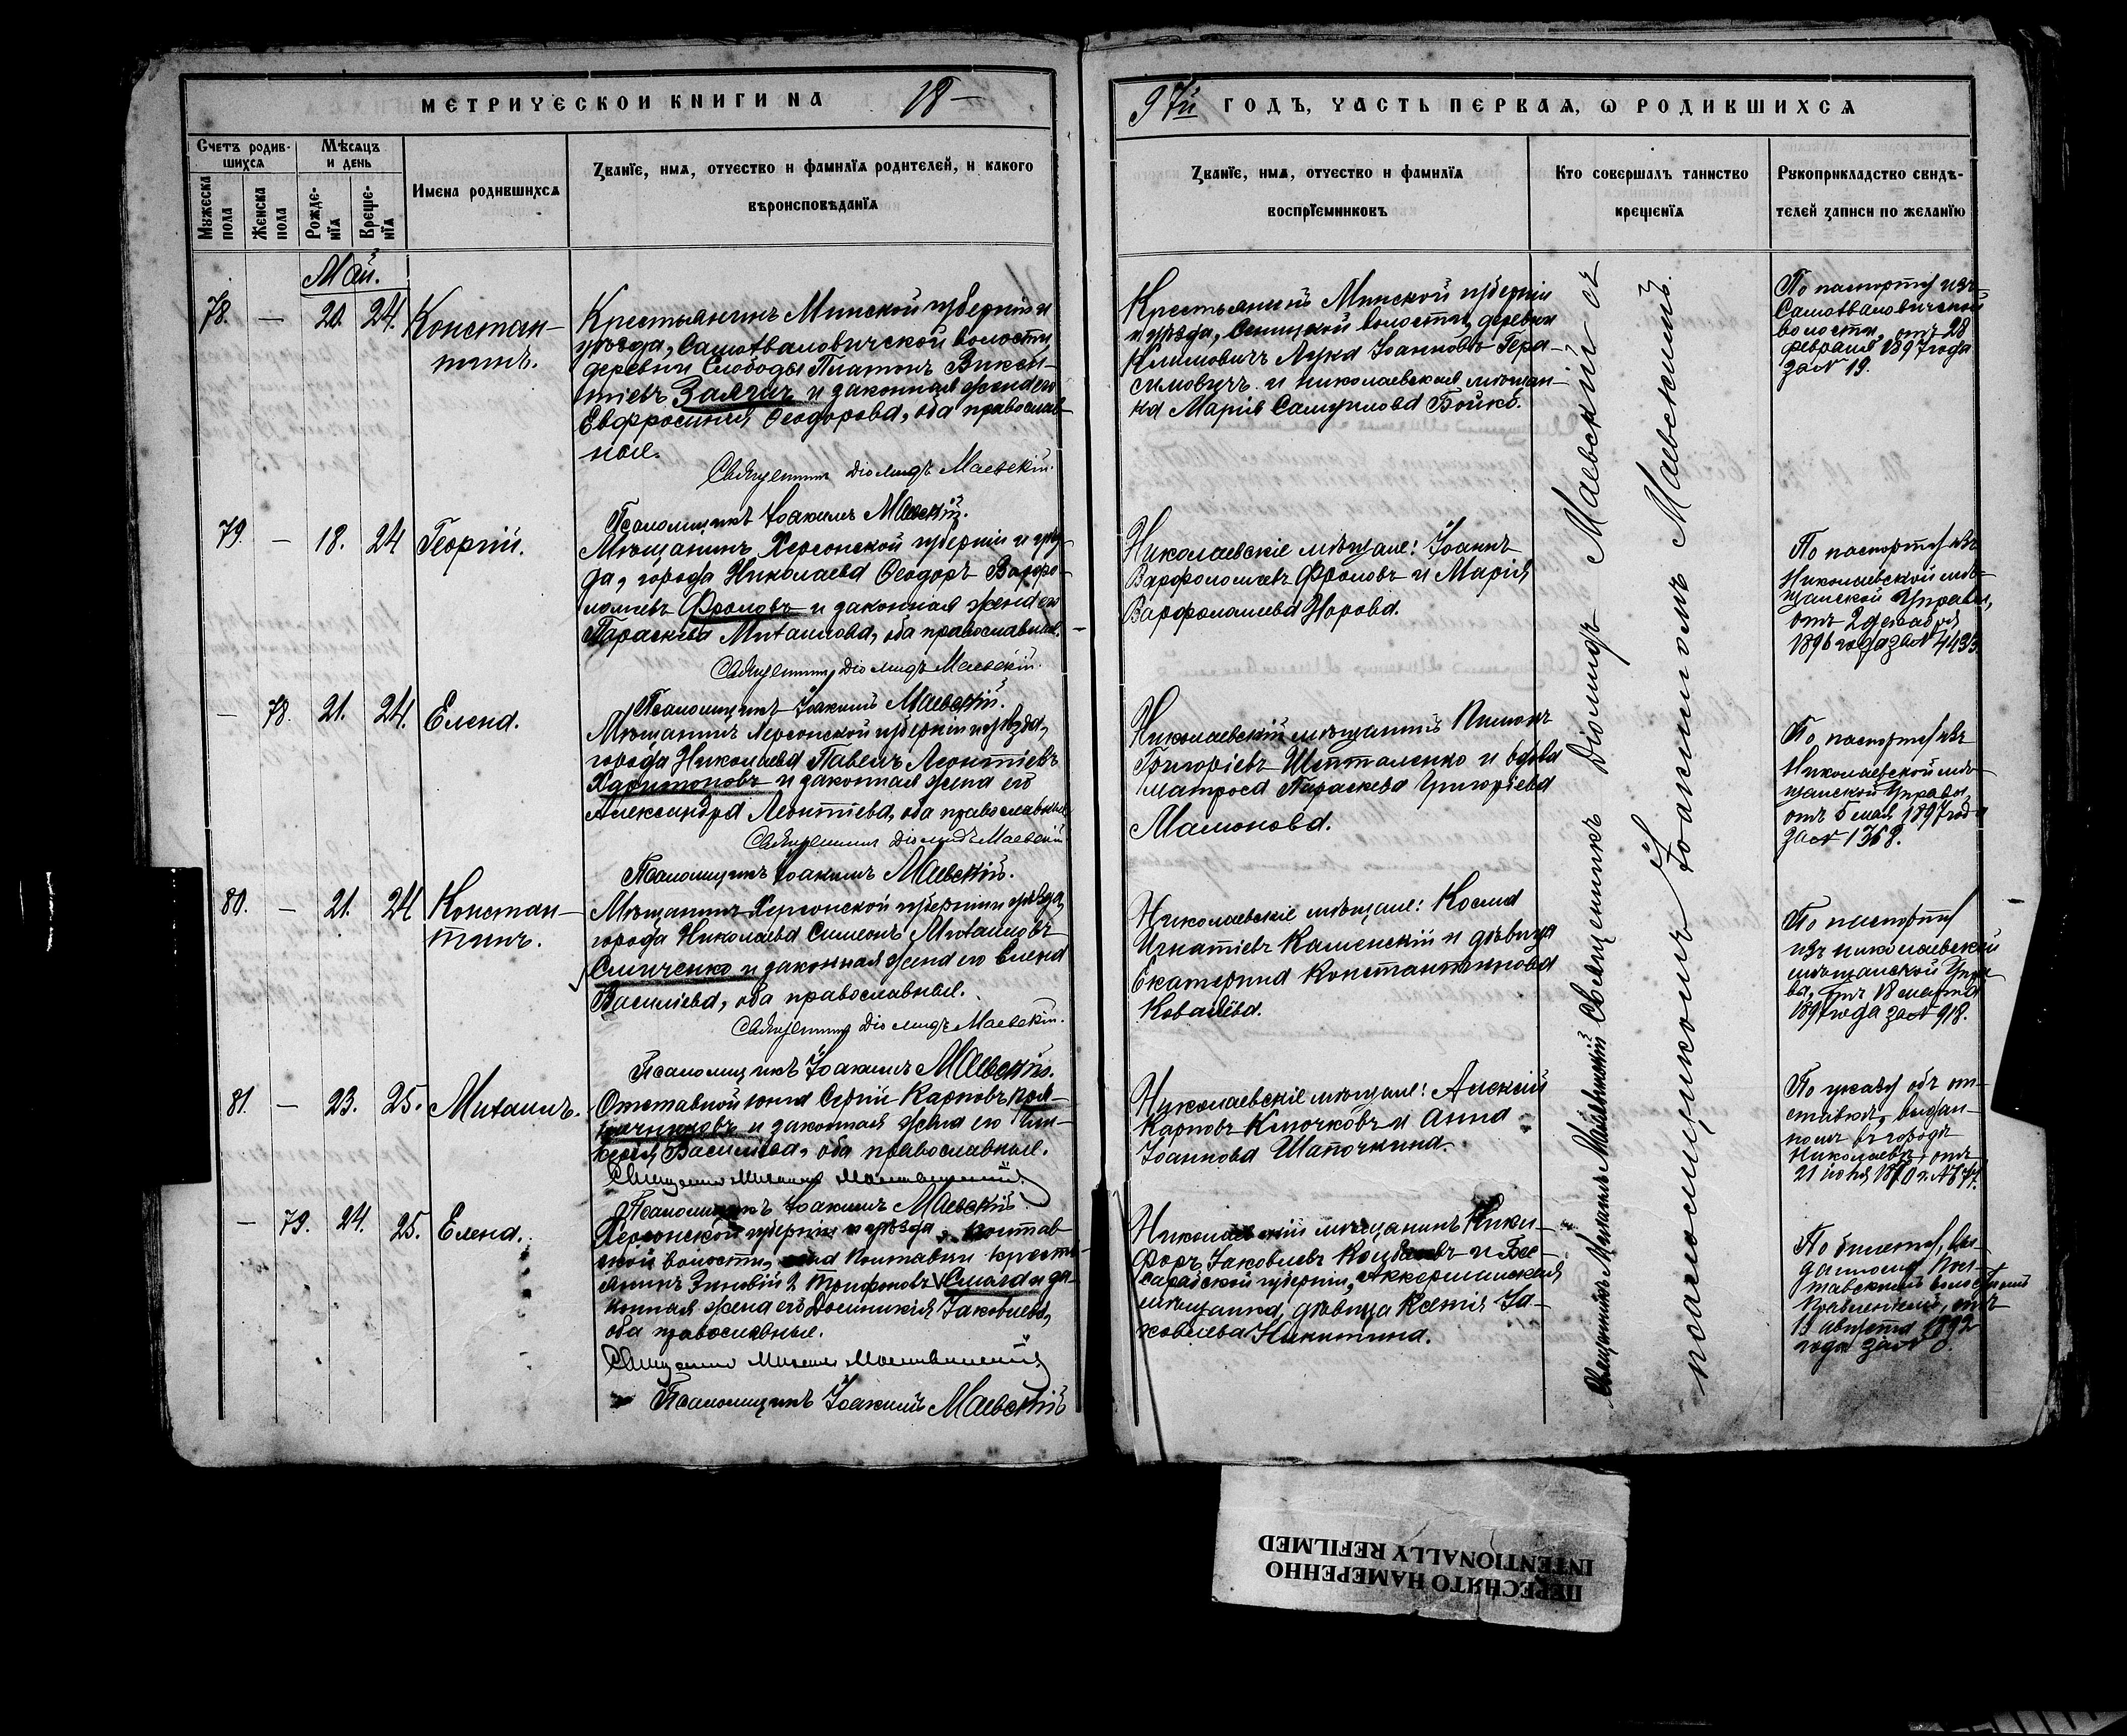 МЕТРИЧЕСКОЙ КНИГИ НА 18—
97й ГОДЪ, ЧАСТЬ ПЕРВАЯ, О РОДИВШИХСЯ
Счетъ родив-
шихся
Мужеска
пола
Женска
пола
Мѣсяцъ
и день
Рожде-
нія
Креще-
нія
Имена родившихся
Званіе, имя, отчество и фамилія родителей, и какого
вѣроисповѣданія
Званіе, имя, отчество и фамилія
воспріемниковъ
Кто совершалъ таинство
крещенія
Рукоприкладство свидѣ-
телей записи по желанію
Май.
78. — 20. 24. Констан-
тинъ.
Крестьянинъ Минской губерніи и
уѣзда, Самохваловичской волости
деревни Слободы Платонъ Викен-
тіевъ и законная жена его
Евфросинія Ѳеодорова, оба православ-
ные.
Священникъ Діомидъ Маевскій.
Псаломщикъ Іоакимъ Маевскій.
Крестьянинъ Минской губерніи
и уѣзда, Сеницкой волости, деревни
Климовичъ Лука Іоанновъ Гера-
симовичъ и николаевская мѣщан-
ка Марія Самуилова Бойко.
По паспорту изъ
Самохваловичской
волости, отъ 28
февраля 1897 года
за № 19.
79 — 18. 24 Георгій.
Мѣщанинъ Херсонской губерніи и уѣз-
да, города Николаева Ѳеодоръ Варѳо-
ломеевъ Фроловъ и законная жена его
Параскева Михаилова, оба православные.
Священникъ Діомидъ Маевскій.
Псаломщикъ Іоакимъ Маевскій.
Николаевскіе мѣщане: Іоаннъ
Варфоломеевъ Фроловъ и Марія
Варфоломеева Норова.
По паспорту изъ
Николаевской мѣ-
щанской Управы,
отъ 2 декабря
1896 года за № 4433.
— 78. 21. 24. Елена.
Мѣщанинъ Херсонской губерніи и уѣзда,
города Николаева Павелъ Леонтіевъ
Харитоновъ и законная жена его
Александра Леонтіева, оба православные.
Священникъ Діомидъ Маевскій.
Псаломщикъ Іоакимъ Маевскій.
Николаевскій мѣщанинъ
Григоріевъ и вдова
матроса Параскева Григоріева
Мамонова.
По паспорту изъ
Николаевской мѣ-
щанской Управы,
отъ 5 мая 1897 года
за №
80. — 21. 24 Констан-
тинъ.
Мѣщанинъ Херсонской губерніи и уѣзда,
города Николаева Симеонъ Михаиловъ
и законная жена его Елена
Василіева, оба православные.
Священникъ Діомидъ Маевскій.
Псаломщикъ Іоакимъ Маевскій.
Николаевскіе мѣщане: Косма
Игнатіевъ Каменскій и дѣвица
Екатерина Константинова
Ковалева.
По паспорту
изъ николаевской
мѣщанской Упра-
вы, отъ 18 марта
1897 года за № 918.
81. — 23. 25. Михаилъ.
Отставной юнга Сергій Карповъ
и законная жена его
Василіева, оба православные.
Священникъ Михаилъ
Псаломщикъ Іоакимъ Маевскій.
Николаевскіе мѣщане: Алексій
Карповъ Клочковъ и Анна
Іоаннова Шапочкина.
По указу объ от-
ставкѣ, выдан-
ному въ городѣ
Николаевѣ, отъ
— 79. 24. 25. Елена.
Херсонской губерніи и уѣзда,
волости, крестья-
нинъ Зиновій Трифоновъ и за-
конная жена его Домникія Іаковлева,
оба православные.
Священникъ Михаилъ
Псаломщикъ Іоакимъ Маевскій
Николаевскій мѣщанинъ Ники-
форъ Іаковлевъ и Бес-
сарабской губерніи, Аккерманская
мѣщанка, дѣвица Ксенія Іа-
ковлева Никитина.
По билету, вы-
данному
волостнымъ
правленіемъ, отъ
13 августа 1892
года за №
Священникъ Михаилъ
Священникъ Діомидъ Маевскій съ
псаломщикомъ Іоакимомъ Маевскимъ.
ПЕРЕСНЯТО НАМЕРЕННО
INTENTIONALLY REFILMED